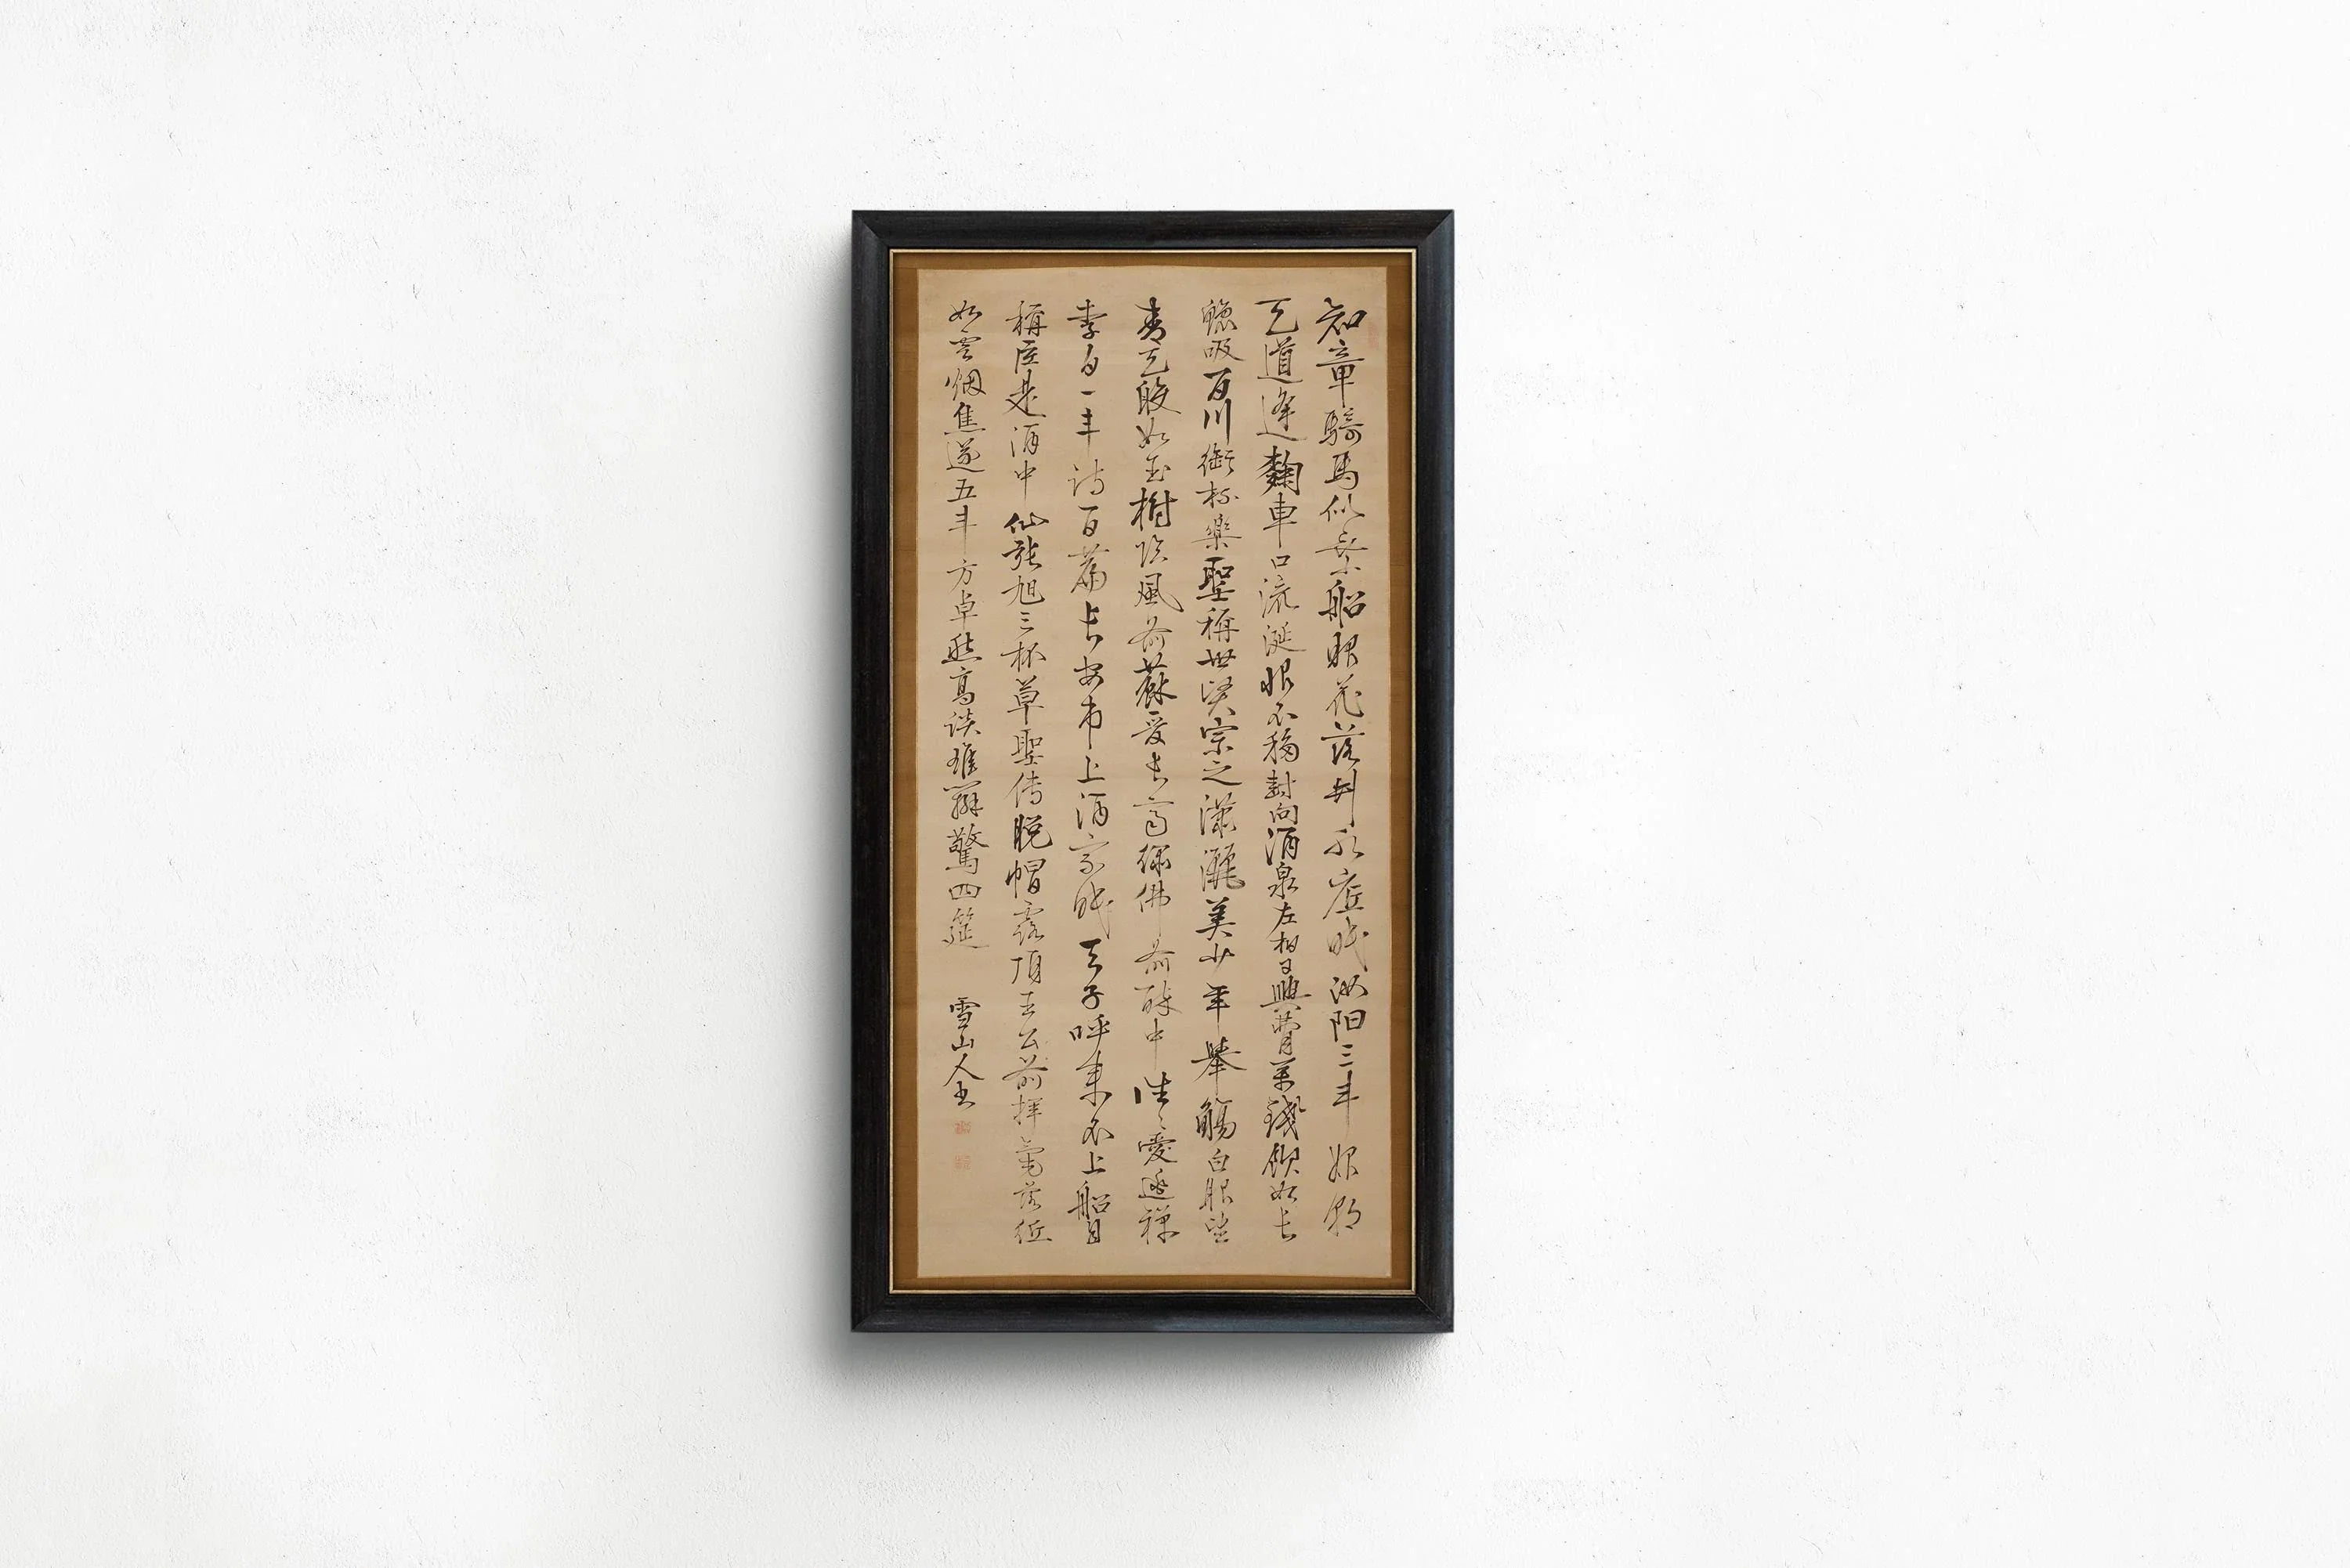 知章騎馬似乘船眼花落井水底眠汝陽三斗始朝
天道逢麴車口流涎恨不移封向酒泉左相日興費萬錢飲如長
鯨吸百川銜杯樂聖稱世賢宗之瀟灑美少年舉觴白眼望
青天皎如玉樹臨風前蘇晉長齋繡佛前醉中往〻愛逃禪
李白一斗詩百篇長安市上酒家眠天子呼來不上船自
稱臣是酒中仙張旭三杯草聖傳脫帽露頂王公前揮毫落紙
如雲烟焦遂五斗方卓然高談雄辯驚四筵
雪山人書